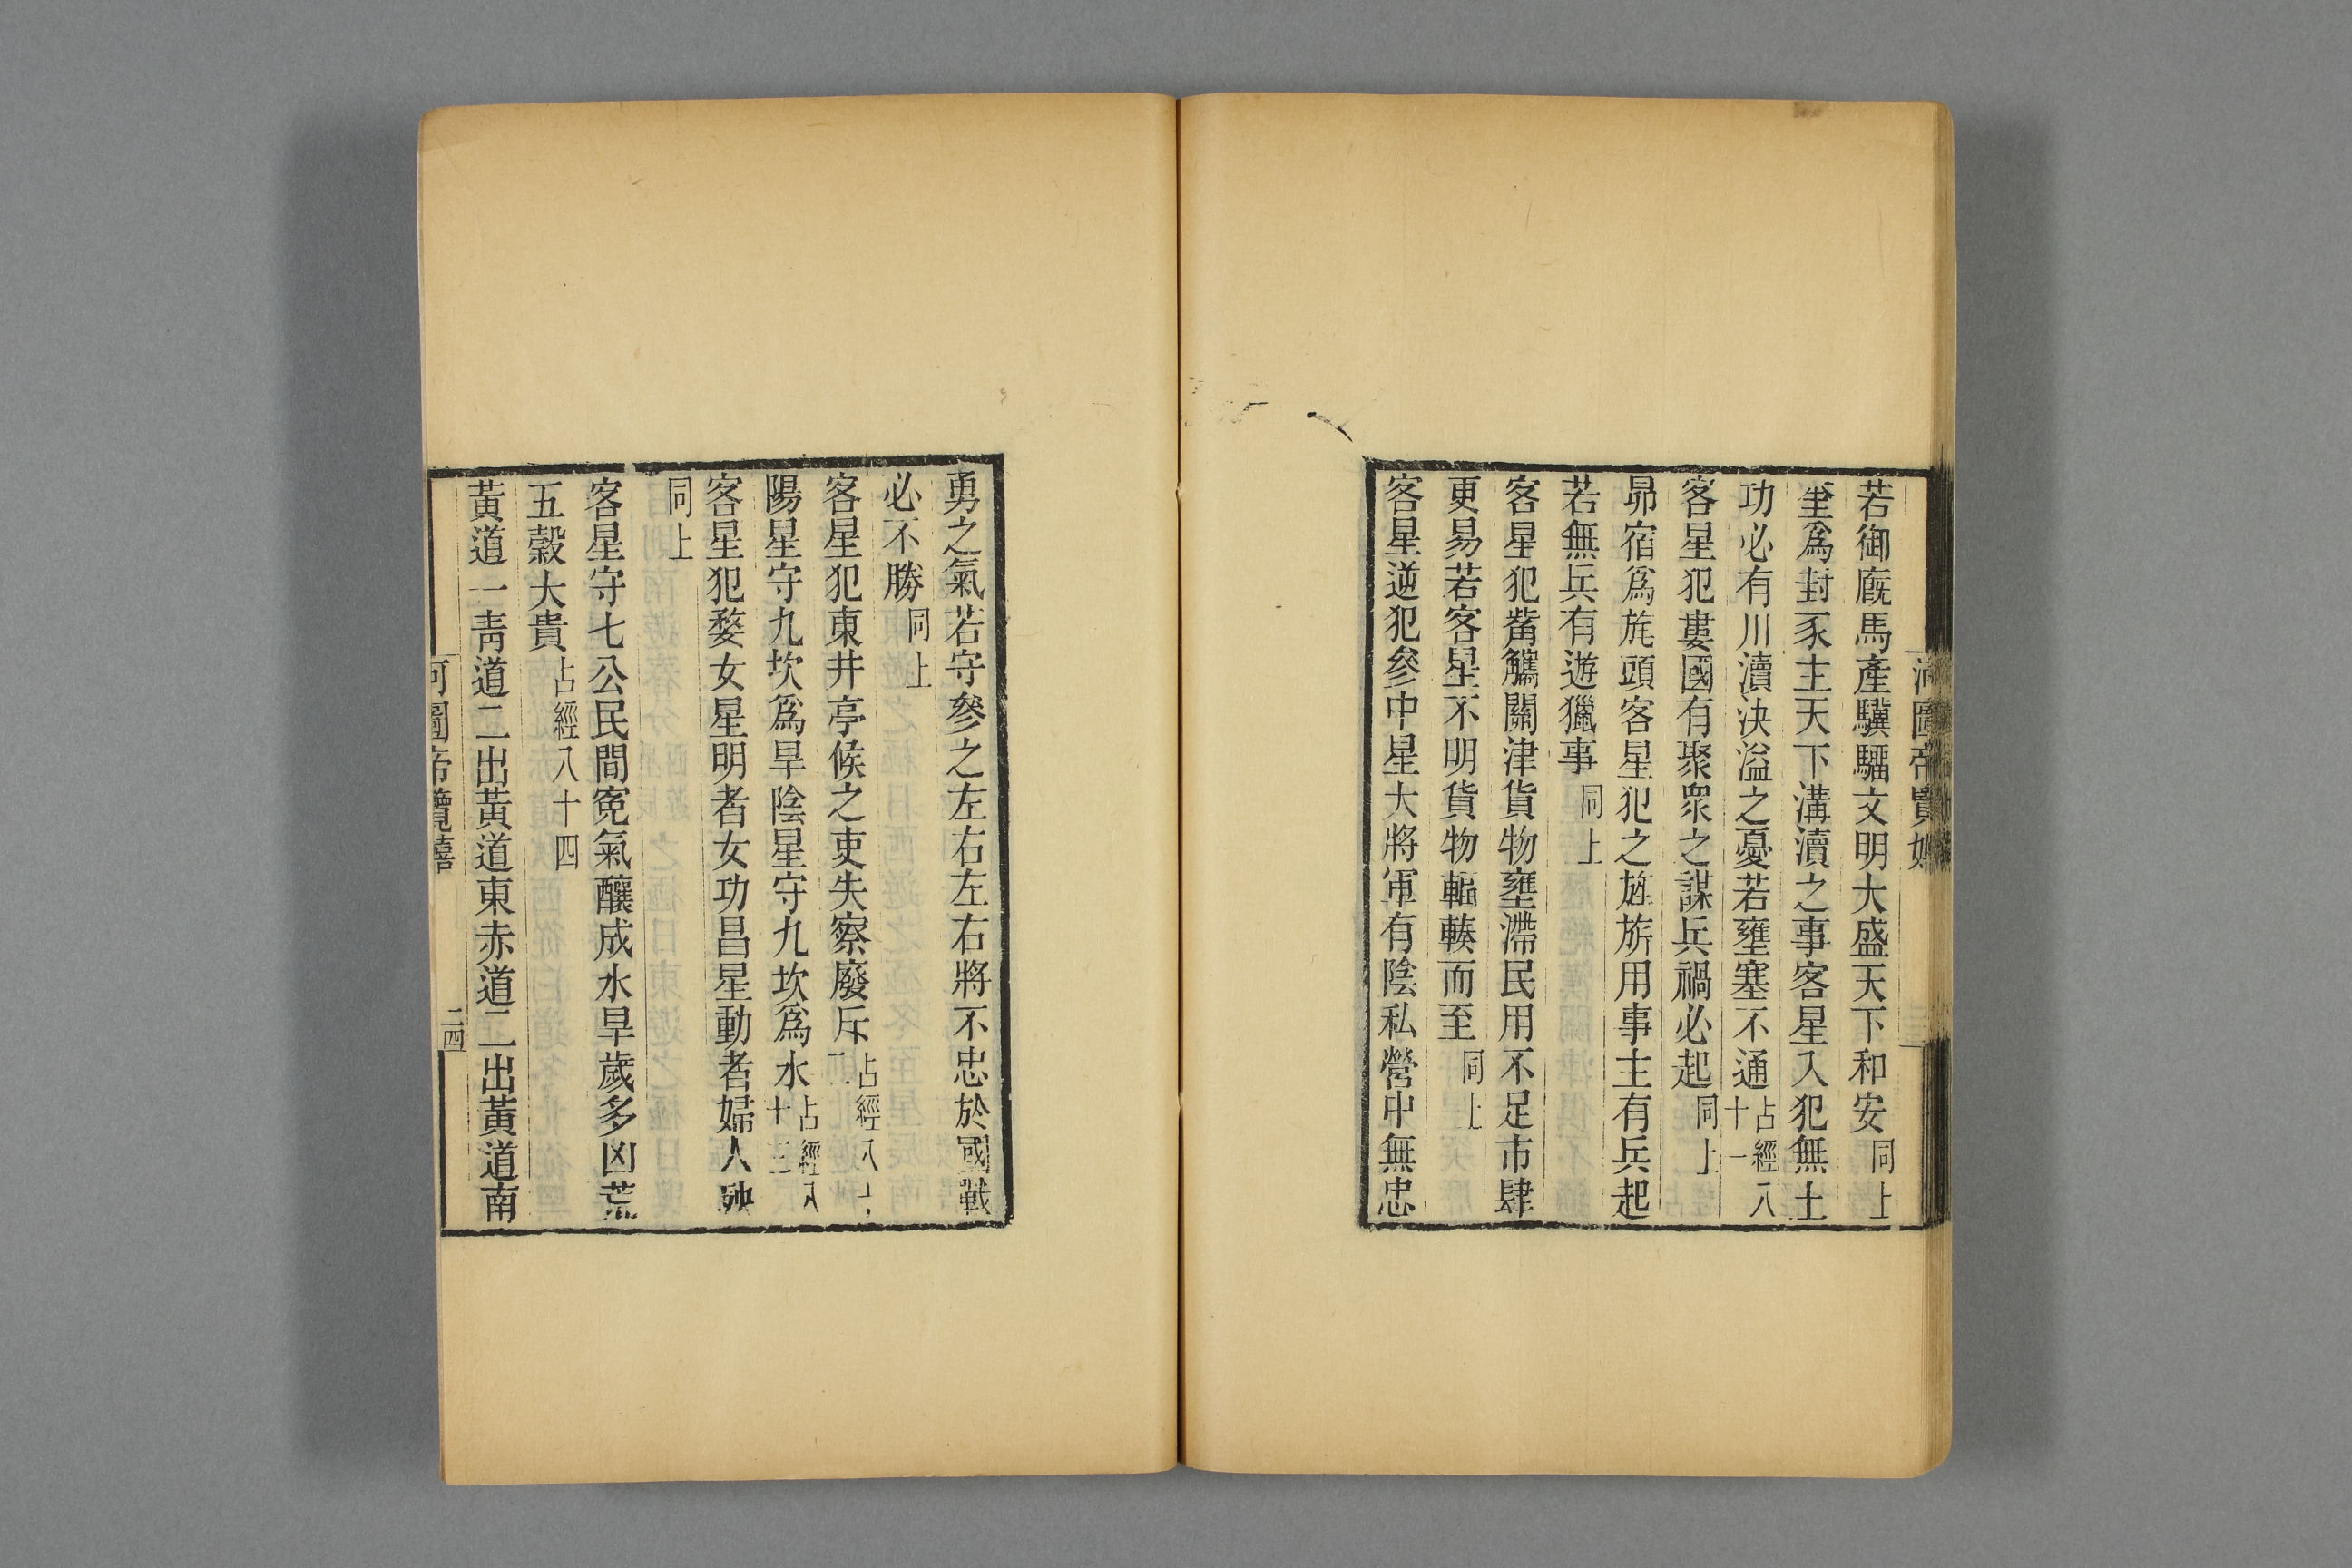 若御廐馬產驥騮文明大盛天下和安同上
奎爲封豕主天下溝瀆之事客星入犯無土
功必有川瀆決溢之憂若壅塞不通占經八十一
客星犯婁國有聚衆之謀兵禍必起同上
昴宿爲旄頭客星犯之旌旂用事主有兵起
若無兵有遊獵事同上
客星犯觜觿關津貨物壅滯民用不足市肆
更易若客星不明貨物輻輳而至同上
客星逆犯參中星大將軍有陰私營中無忠
勇之氣若守參之左右左右將不忠於國戰
必不勝同上
客星犯東井亭候之吏失察廢斥占經八十二
陽星守九坎爲旱陰星守九坎爲水占經八十三
客星犯婺女星明者女功昌星動者婦人殃
同上
客星守七公民間寃氣釀成水旱歲多凶荒
五穀大貴占經八十四
黃道一靑道二出黃道東赤道二出黃道南
河圖帝覽嬉
二四